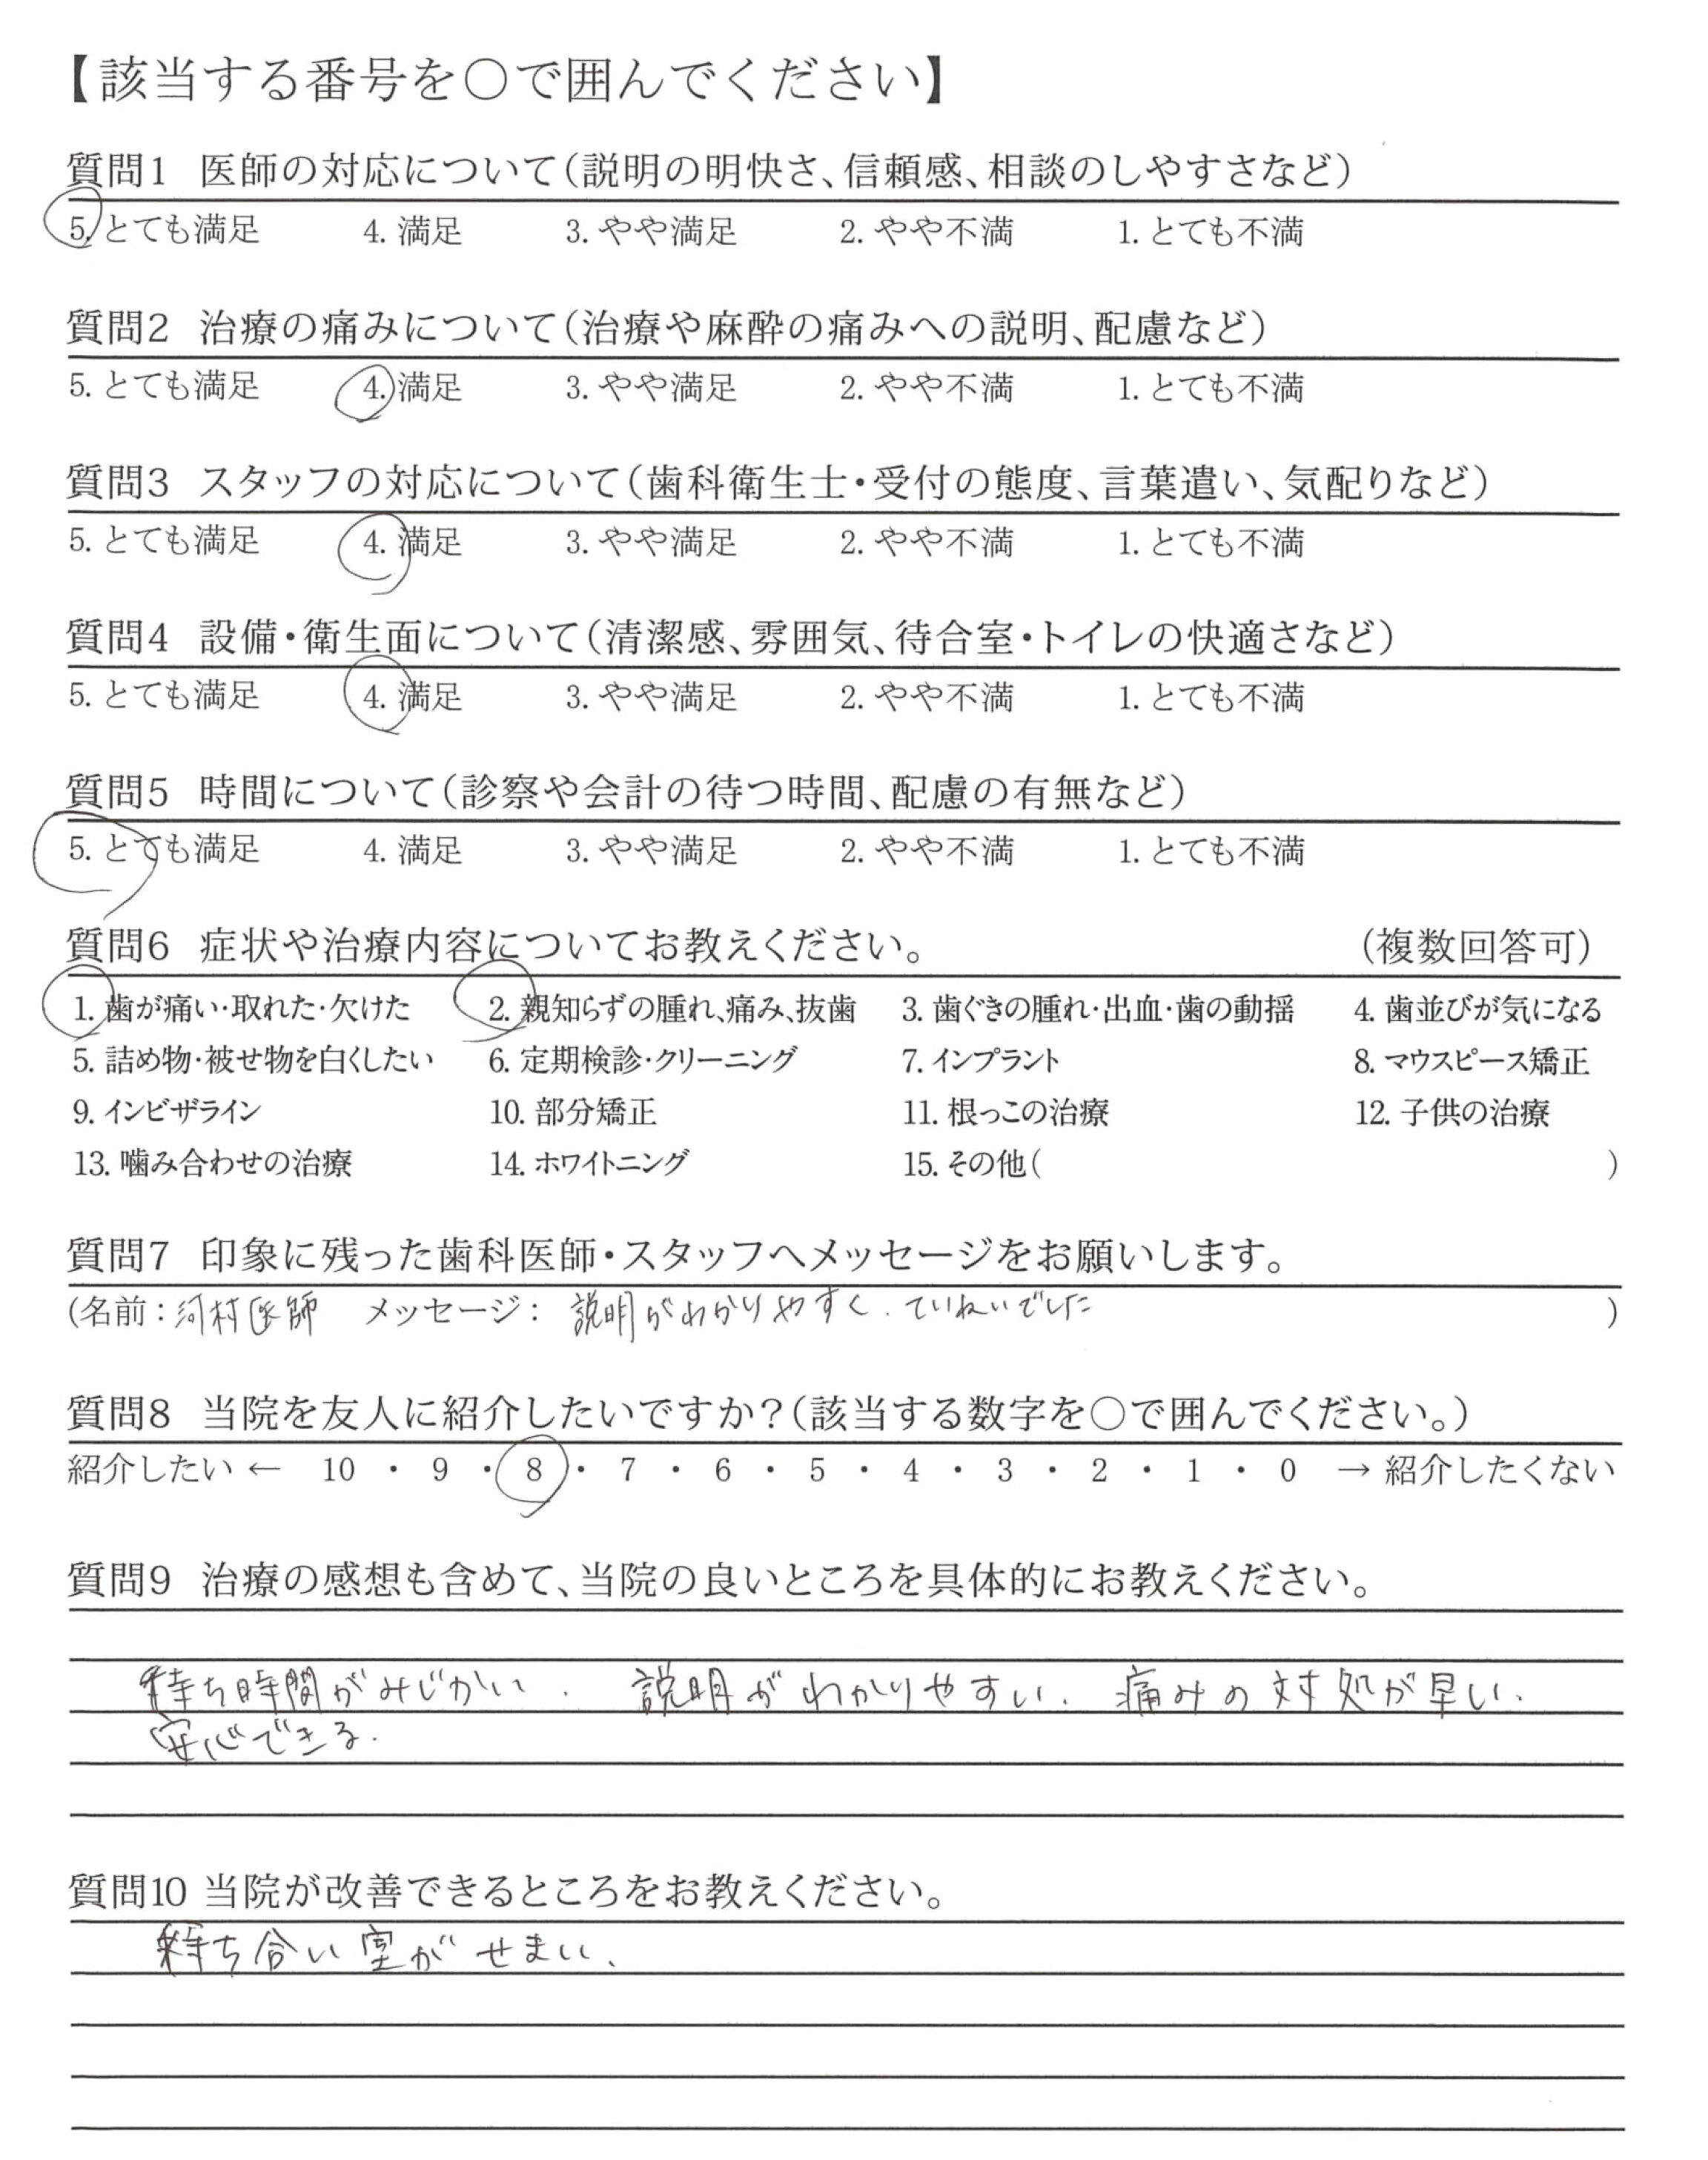 【該当する番号を○で囲んでください】
質問1 医師の対応について（説明の明快さ、信頼感、相談のしやすさなど）
5. とても満足 4. 満足 3. やや満足 2. やや不満 1. とても不満
質問2 治療の痛みについて（治療や麻酔の痛みへの説明、配慮など）
5. とても満足 4. 満足 3. やや満足 2. やや不満 1. とても不満
質問3 スタッフの対応について（歯科衛生士・受付の態度、言葉遣い、気配りなど）
5. とても満足 4. 満足 3. やや満足 2. やや不満 1. とても不満
質問4 設備・衛生面について（清潔感、雰囲気、待合室・トイレの快適さなど）
5. とても満足 4. 満足 3. やや満足 2. やや不満 1. とても不満
質問5 時間について（診察や会計の待つ時間、配慮の有無など）
5. とても満足 4. 満足 3. やや満足 2. やや不満 1. とても不満
質問6 症状や治療内容についてお教えください。 （複数回答可）
1. 歯が痛い・取れた・欠けた 2. 親知らずの腫れ、痛み、抜歯 3. 歯ぐきの腫れ・出血・歯の動揺 4. 歯並びが気になる
5. 詰め物・被せ物を白くしたい 6. 定期検診・クリーニング 7. インプラント 8. マウスピース矯正
9. インビザライン 10. 部分矯正 11. 根っこの治療 12. 子供の治療
13. 噛み合わせの治療 14. ホワイトニング 15. その他（ ）
質問7 印象に残った歯科医師・スタッフへメッセージをお願いします。
（名前：河村医師 メッセージ： 説明がわかりやすく．ていねいでした ）
質問8 当院を友人に紹介したいですか？（該当する数字を○で囲んでください。）
紹介したい ← 10 ・ 9 ・ 8 ・ 7 ・ 6 ・ 5 ・ 4 ・ 3 ・ 2 ・ 1 ・ 0 → 紹介したくない
質問9 治療の感想も含めて、当院の良いところを具体的にお教えください。
待ち時間がみじかい． 説明がわかりやすい． 痛みの対処が早い．
安心できる．
質問10 当院が改善できるところをお教えください。
待ち合い室がせまい．